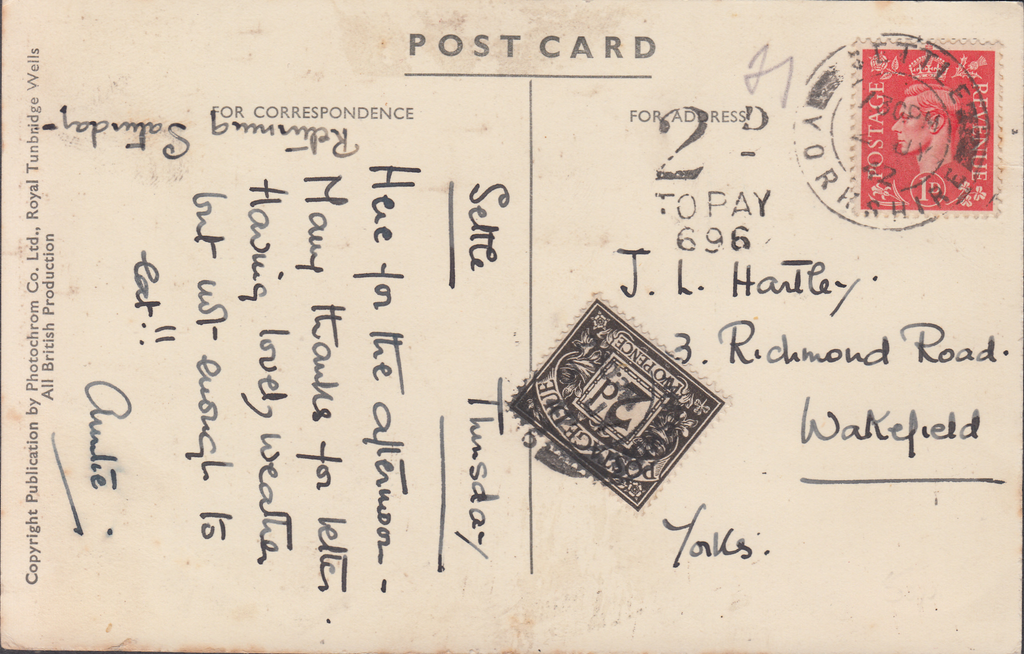 POST CARD
FOR CORRESPONDENCE
FOR ADDRESS
Copyright Publication by Photochrom Co. Ltd., Royal Tunbridge Wells
All British Production
Settle Thursday
Here for the afternoon -
Many thanks for letter.
Having lovely weather
but not enough to
eat!!
Auntie.
Returning
Saturday -
2D
TO PAY
696
SETTLE
YORKSHIRE
POSTAGE REVENUE
1D
J. L. Hartley.
3. Richmond Road.
Wakefield
Yorks.
POSTAGE DUE
2d
TWO PENCE